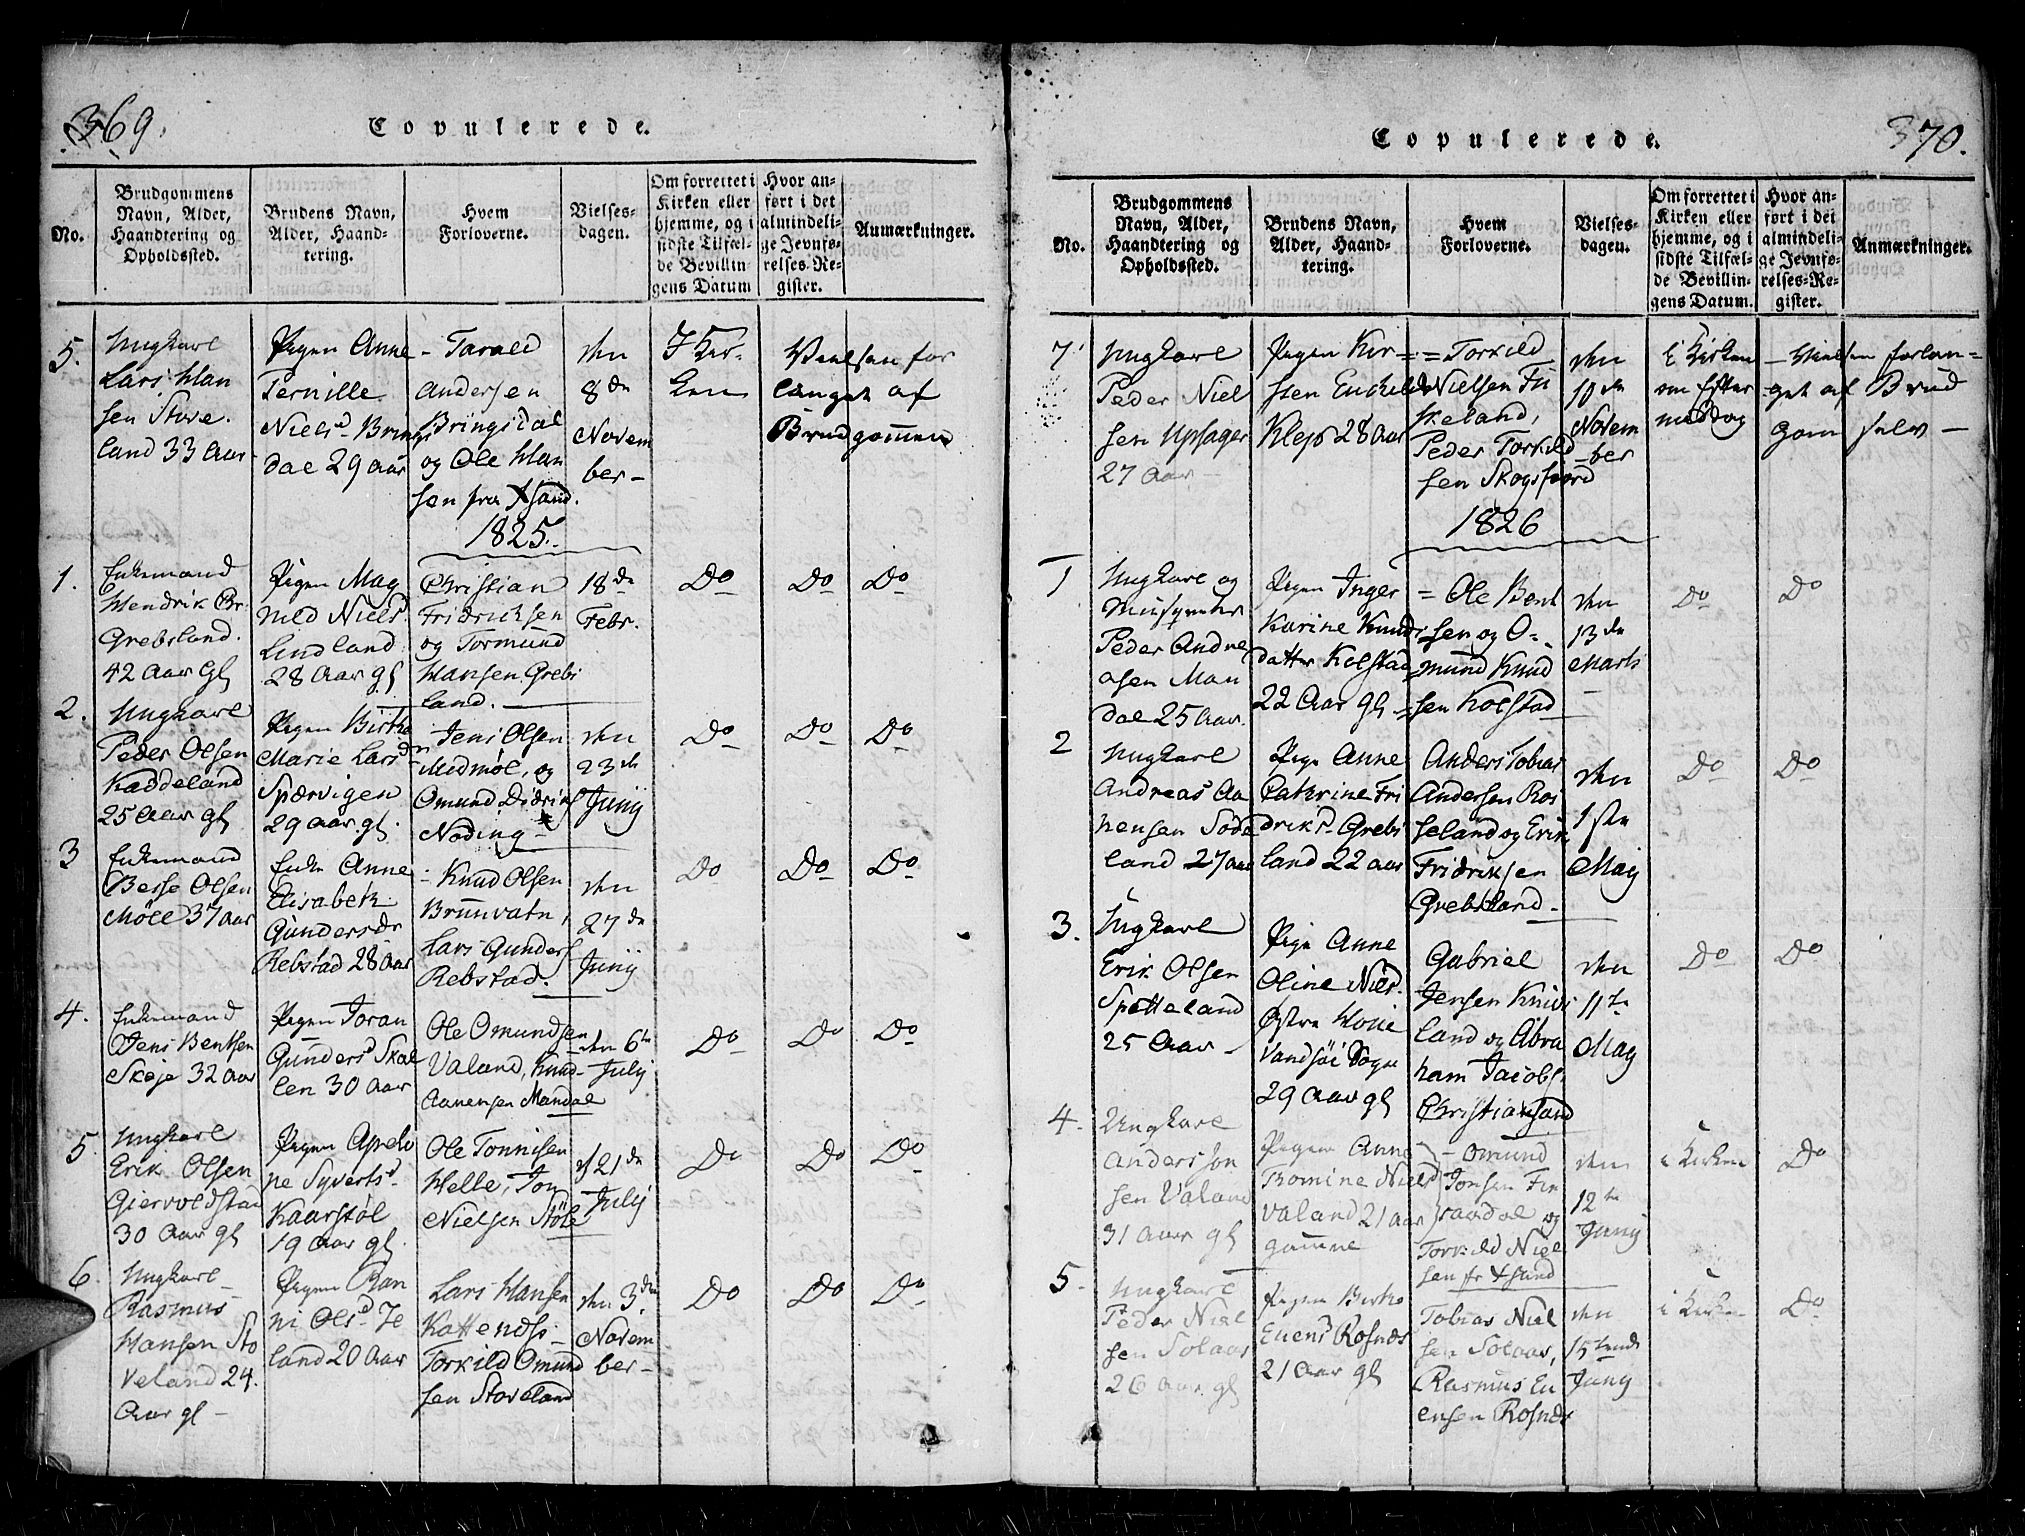 369.
Copulerede.
No.
Brudgommens
Navn, Alder,
Haandtering og
Opholdssted.
Brudens Navn,
Alder, Haand-
tering.
Hvem
Forloverne.
Vielses-
dagen.
Om forrettet i
Kirken eller
hjemme, og i
sidste Tilfæl-
de Bevillin
gens Datum
Hvor an-
ført i det
almindeli-
ge Jevnfø-
relses-Re-
gister.
Anmærkninger.
5.
Ungkarl
Lars Han
sen Stove.
land 33 Aar
Pigen Anne
Pernille
Nielsd. Brings
dal 29 aar
- Tarald
Andersen
Bringsdal
og Ole Han
sen fra Xsand.
den
8de
Novem
ber -
I Kir-
ken
Vielsen for
langet af
Brudgommen
1825.
1.
Enkemand
Hendrik
Grebsland.
42 Aar gl
Pigen Mag
nild Nielsd.
Lindland
28 Aar gl
Christian
Fridrichsen
og Tormund
Hansen Grebs
land.
18de
Febr.
Do
Do
Do
2.
Ungkarl
Peder Olsen
Kaddeland
25 Aar gl
Pigen Birthe
Marie Larsd
Spærvigen
29 aar gl.
Jens Olsen
Medmøl, og
Omund Didriks
Nøding
den
23de
Junij
Do
Do
Do
3
Enkemand
Berge Olsen
Møll 37 Aar
Enke Anne
Elisabeth
Gundersdr
Rebstad 28 Aar
- Knud Olsen
Brunvatn,
Lars Gunders
Rebstad.
den
27de
Junij
Do
Do
Do
4.
Enkemand
Jens Bentsen
Skeje 32 Aar
Pigen Joran
Gundersd Skal
len 30 aar
Ole Omundsen
Valand, Knud
Aanensen Mandal
den 6te
Julij
Do
Do
Do
5.
Ungkarl
Erik Olsen
Giervoldstad
30 Aar gl
Pigen Apelo
ne Syvertsd
Kaarstøl
19 aar gl.
Ole Tønnisen
Helle, Jon
Nielsen Støle
d 21de
Julij
Do
Do
Do
6.
Ungkarl
Rasmus
Hansen Sto
veland 24.
Aar gl -
Pigen Ran
ni Olsd
land 20 Aar
Lars Hansen
Torkild Omund
sen Stoveland
den 3die
Novem
ber -
Do
Do
Do
370.
Copulerede.
No.
Brudgommens
Navn, Alder,
Haandtering og
Opholdssted.
Brudens Navn,
Alder, Haand-
tering.
Hvem
Forloverne.
Vielses-
dagen.
Om forrettet i
Kirken eller
hjemme, og i
sidste Tilfæl-
de Bevillin-
gens Datum.
Hvor an-
ført i det
almindeli-
ge Jevnfø-
relses-Re-
gister.
Anmærkninger.
7
Ungkarl
Peder Niel
sen Upsager
27 Aar -
Pigen Kir-
sten
Klep 28 Aar
= Torkild
Nielsen Fu
skeland,
Peder Torkild
sen Skogsfjord
den
10de
Novem
ber
i Kirken
om Efter
middag
- Vielsen forlan-
get af Brud
gom selv -
1826
1
Ungkarl og
Peder Andre
asen Man
dal 25 Aar.
Pigen Inger
Karine Knuds
datter Kolstad
22 Aar gl
= Ole Bent
sen og O-
mund Knud
sen Kolstad
den
13de
Marts
Do
Do
2
Ungkarl
Andreas Aa
nensen Søde
land 27 aar
Pige Anne
Cathrine Fri
driksd. Grebs
land 22 aar
Anders Tobias
Andersen Ros
seland og Erik
Fridriksen
Grebsland
den
1ste
Maij
Do
Do
3.
Ungkarl
Erik Olsen
Spetteland
25 Aar -
Pige Anne
Oline Niels.
Østre Hoie
Vandsøe Sogn
29 Aar gl
Gabriel
Jensen Knibs
land og Abra
ham Jacobs.
Christiansand
den
11te
Maij
Do
Do
4.
Ungkarl
Anders Jon
sen Valand
31 Aar gl
Pigen Anne
Tomine Nielsd
Valand 21 aar
gamme
- Omund
Jonsen Fin
saadal og
Torkild Niel
sen fr Xsand
den
12te
Junij
i Kirken
Do
5.
Ungkarl
Peder Niel
sen Solaas
26 Aar gl
Pigen Birthe
Euensd Rosnes
21 Aar gl
Tobias Niel
sen Solaas,
Rasmus Eu
ensen Rosnes
den
15tende
Junij
i Kirken
Do